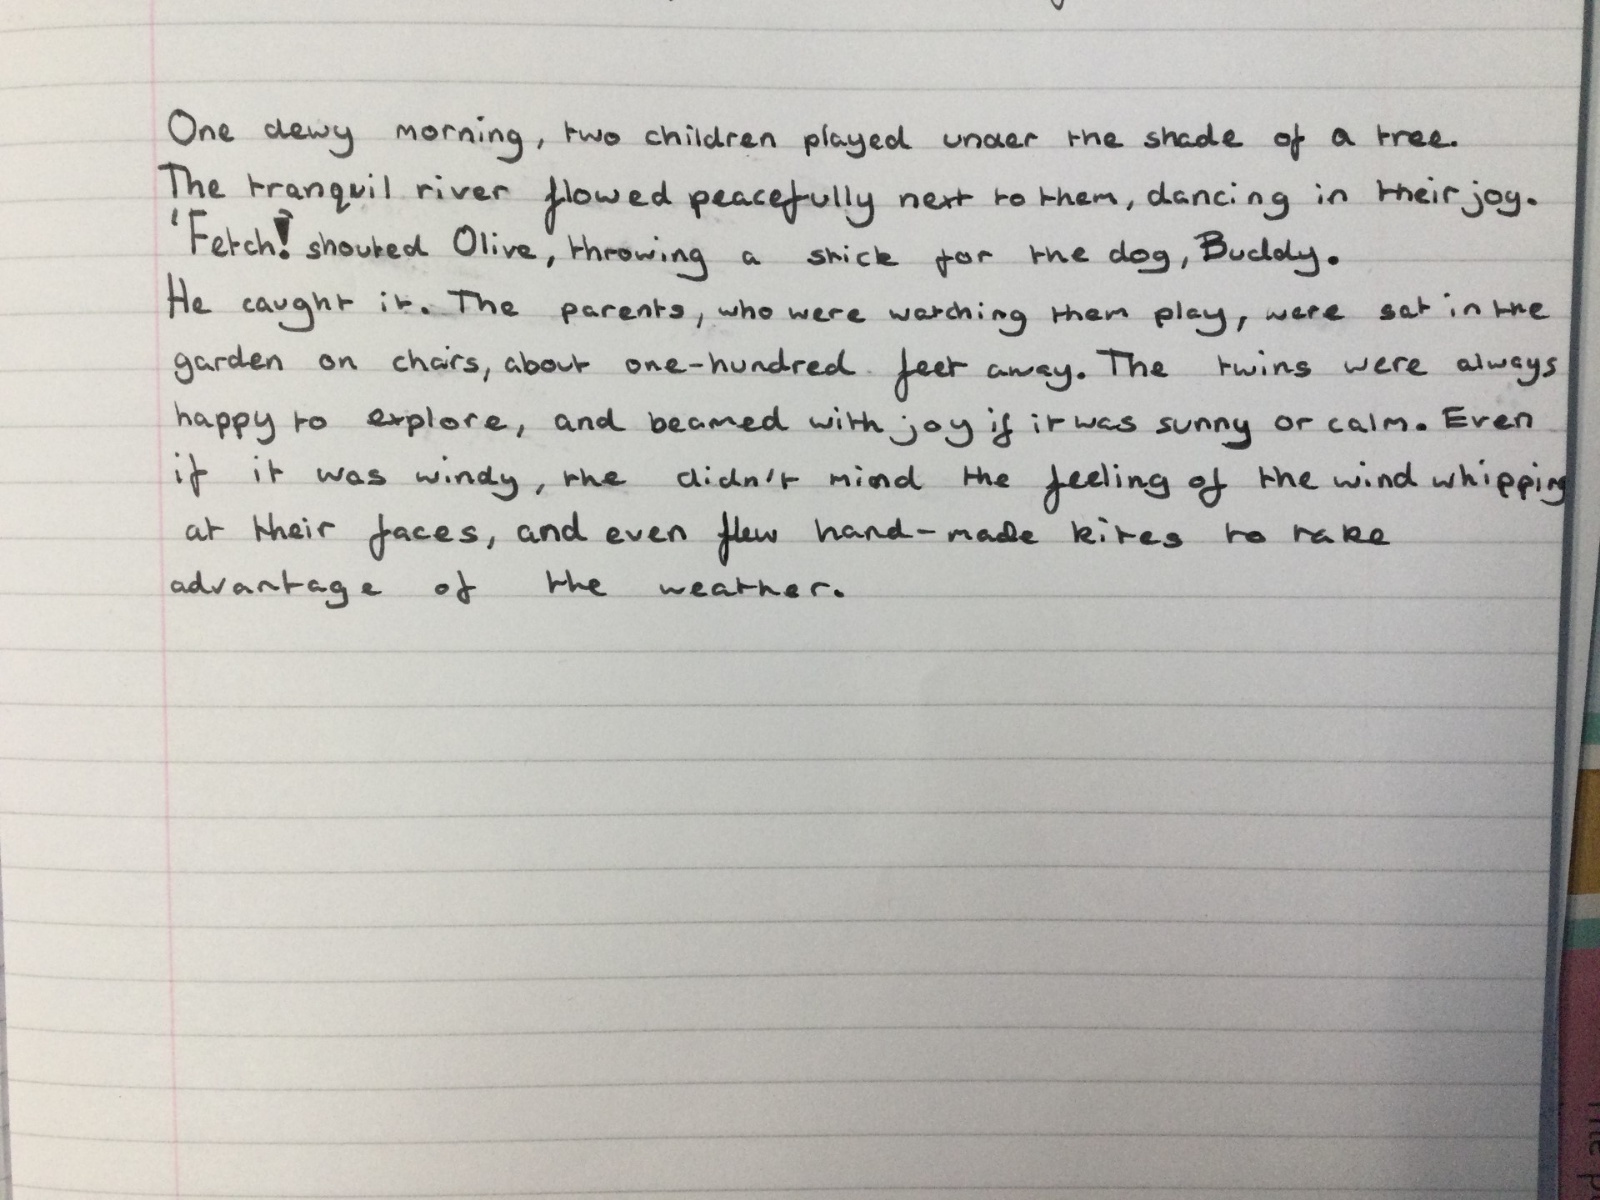 One dewy morning, two children played under the shade of a tree.
The tranquil river flowed peacefully next to them, dancing in their jog.
'Fetch!' shouted Olive, throwing a stick for the dog, Buddy.
He caught it. The parents, who were watching them play, were sat in the
garden on chairs, about one-hundred feet away. The twins were always
happy to explore, and beamed with joy if it was sunny or calm. Even
if it was windy, the didn't mind the feeling of the wind whipping
at their faces, and even flew hand-made kites to take
advantage of the weather.